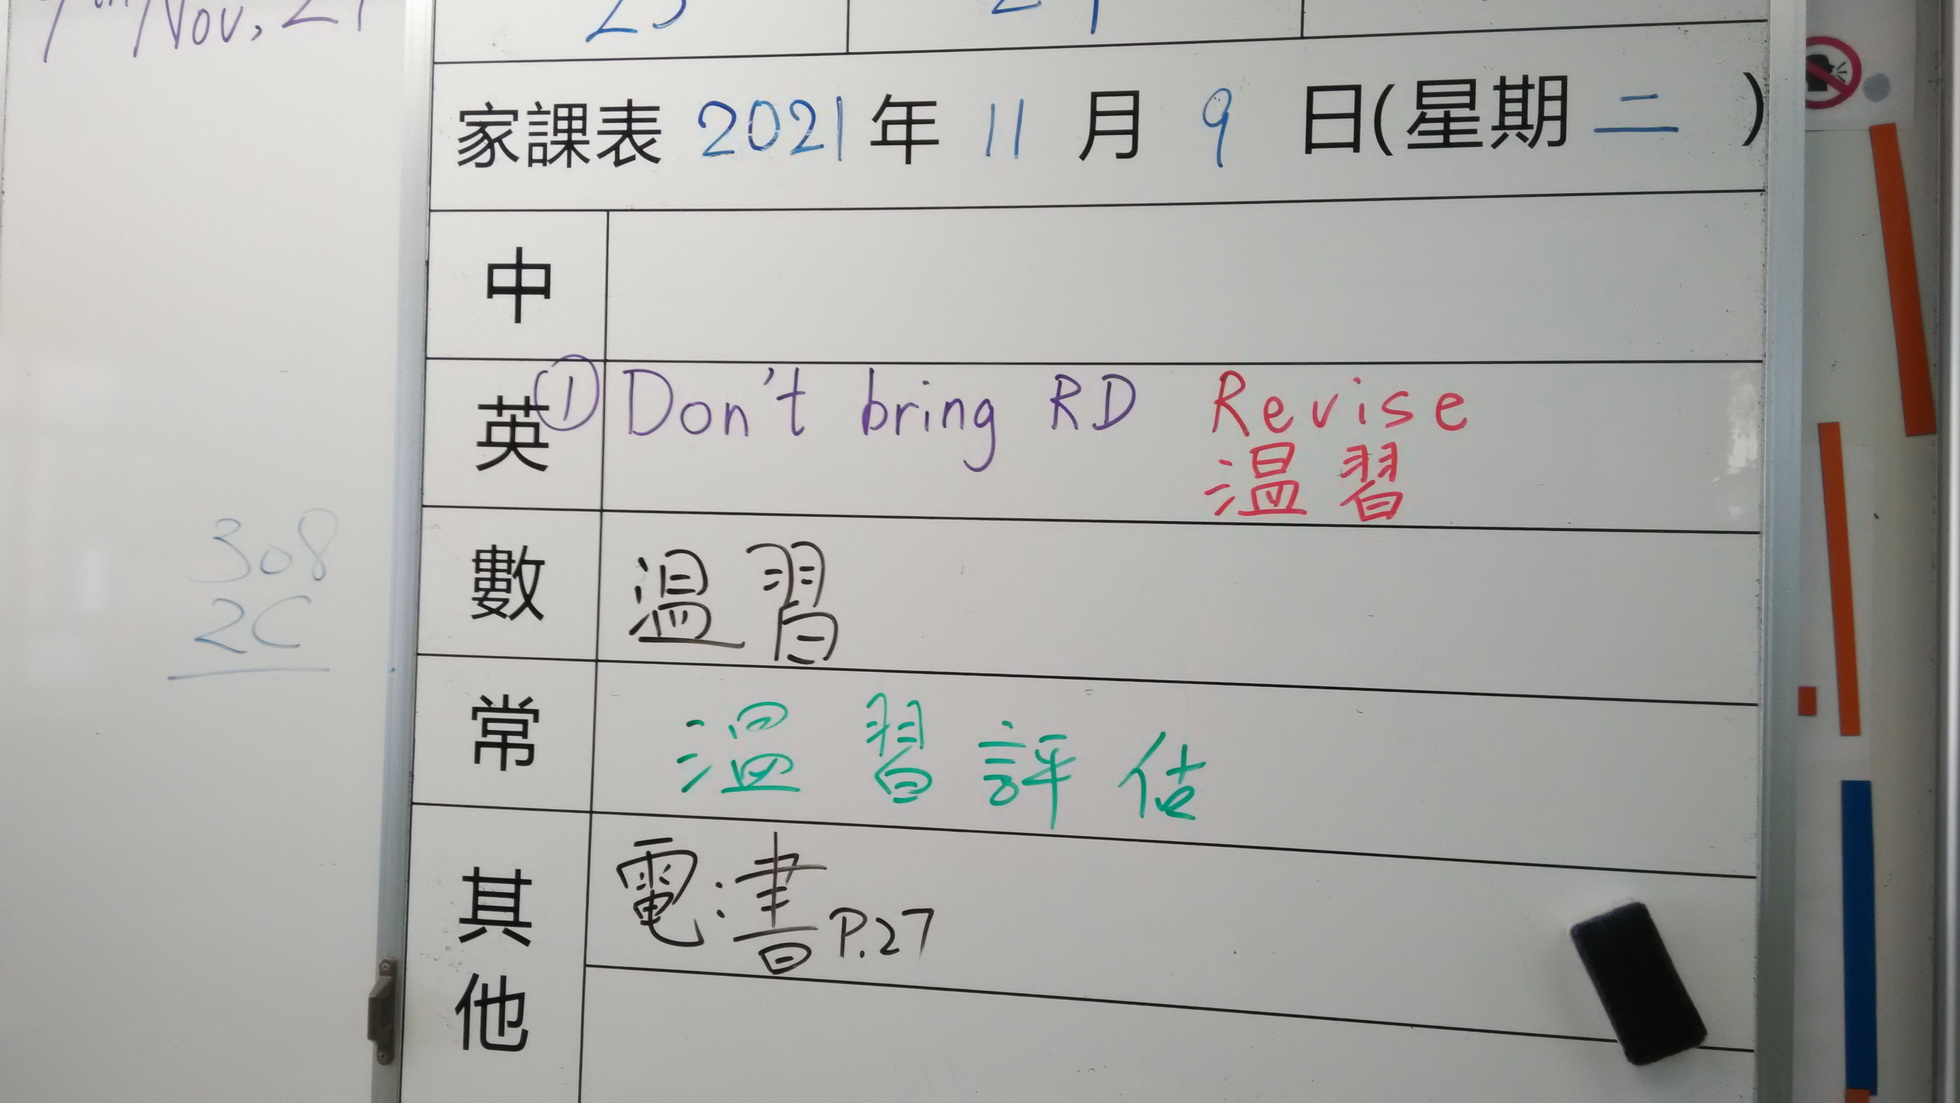 Nov, 21
家課表 2021年 11 月 9 日(星期 二 )
中
英 ① Don't bring RD Revise
温習
數 温習
常 温習評估
其他 電:書 P.27
308
2C